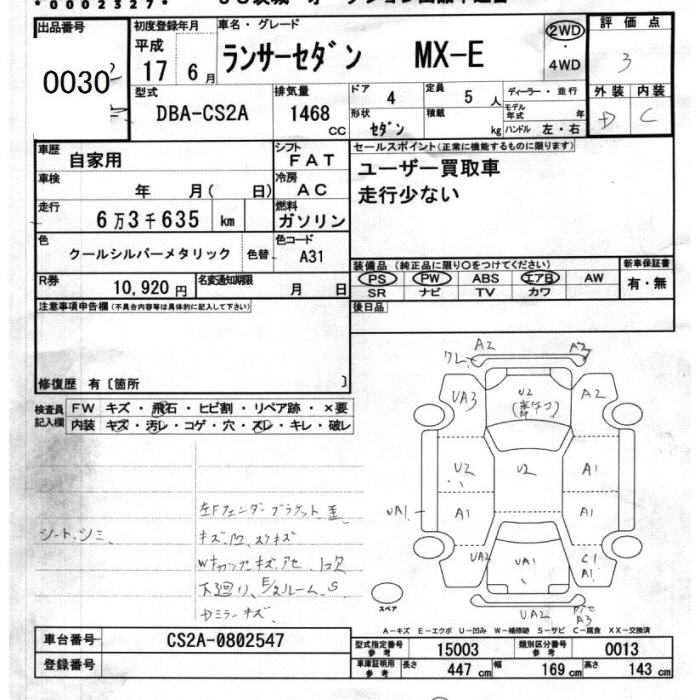 *0002327*
出品番号
0030
初度登録年月
平成
17 6月
車名・グレード
ランサーセダン MX-E
2WD
・
4WD
評価点
3
型式
DBA-CS2A
排気量
1468
CC
ドア
4
定員
5 人
形状
セダン
積載
kg
ディーラー・並行
モデル年式 年
ハンドル 左・右
外装 内装
D C
車歴
自家用
シフト
FAT
車検
年 月( 日)
冷房
AC
走行
6万3千635 km
燃料
ガソリン
色
クールシルバーメタリック
色替
色コード
A31
R券
10,920円
名変通知期限
月 日
セールスポイント(正常に機能するものに限ります)
ユーザー買取車
走行少ない
装備品(純正品に限り○をつけてください)
PS PW ABS エアB AW
SR ナビ TV カワ
新車保証書
有・無
後日品
注意事項申告欄(不具合内容等は具体的に記入して下さい)
修復歴 有〔箇所 〕
検査員
記入欄
FW キズ・飛石・ヒビ割・リペア跡・×要
内装 キズ・汚レ・コゲ・穴・スレ・キレ・破レ
シート、シミ
左Fフェンダーブラケット歪
キズ、凹、スリキズ
下廻り、E/ルーム、S
Dミラーキズ
A2
ワレ
A2
UA3
U2
A2
U2
U2
A1
UA1
A1
A1
UA2
UA1
C1
A1
UA2
A3
スペア
A-キズ E-エクボ U-凹み W-補修跡 S-サビ C-腐食 XX-交換済
車台番号
CS2A-0802547
登録番号
型式指定番号
参考
15003
類別区分番号
参考
0013
車庫証明用
参考
長さ 447cm 幅 169cm 高さ 143cm